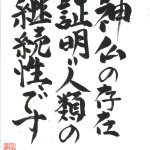 神仏の存在
証明は人類の
継続性です